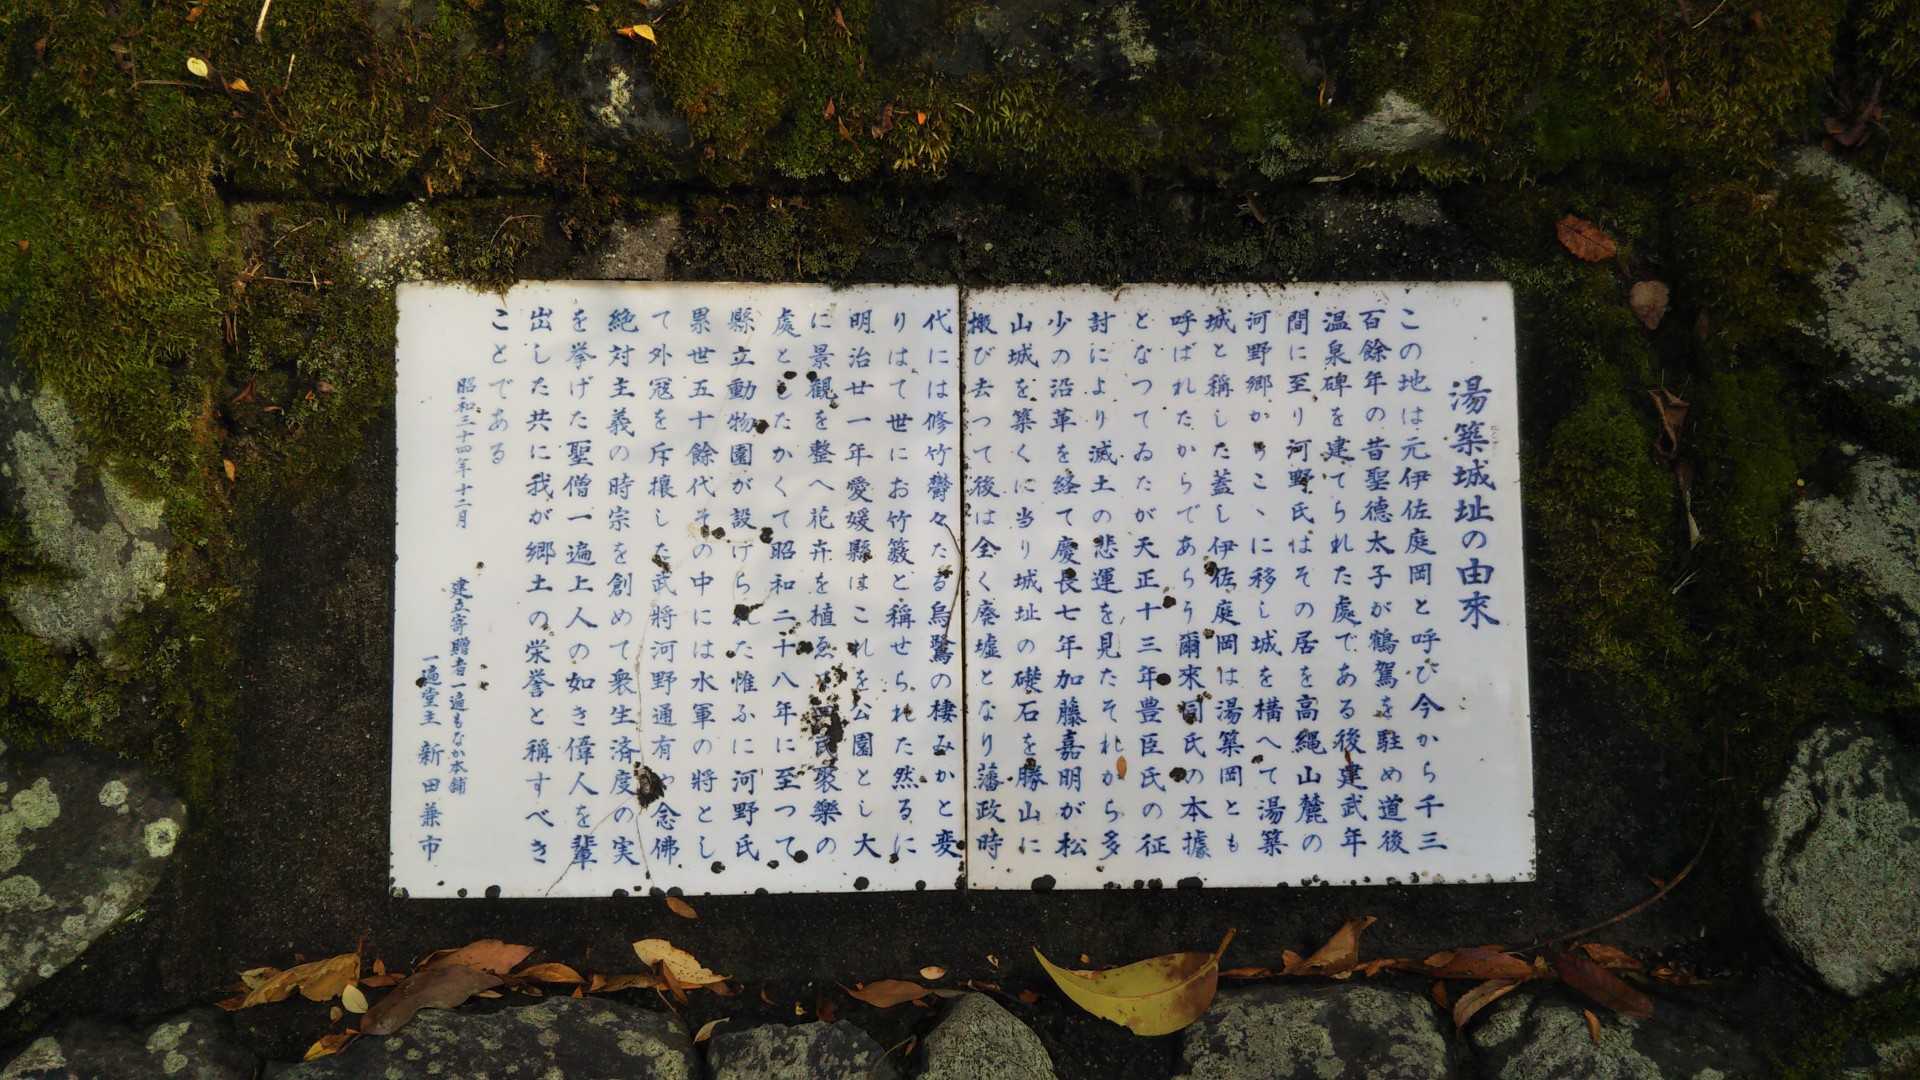 湯築城址の由來
この地は元伊佐庭岡と呼び今から千三
百餘年の昔聖德太子が鶴駕を駐め道後
温泉碑を建てられた處である後建武年
間に至り河野氏はその居を高縄山麓の
河野郷からこゝに移し城を構へて湯築
城と稱した蓋し伊佐庭岡は湯築岡とも
呼ばれたからであらう爾來同氏の本據
となつてゐたが天正十三年豊臣氏の征
討により滅土の悲運を見たそれから多
少の沿革を経て慶長七年加藤嘉明が松
山城を築くに当り城址の礎石を勝山に
搬び去つて後は全く廃墟となり藩政時
代には修竹欝々たる烏鷺の棲みかと変
りはて世にお竹薮と稱せられた然るに
明治廿一年愛媛縣はこれを公園とし大
に景觀を整へ花卉を植ゑ民聚樂の
處としたかくて昭和二十八年に至つて
縣立動物園が設けられた惟ふに河野氏
累世五十餘代その中には水軍の將とし
て外冦を斥攘した武將河野通有や念佛
絶対主義の時宗を創めて衆生済度の実
を挙げた聖僧一遍上人の如き偉人を輩
出した共に我が郷土の栄誉と稱すべき
ことである
昭和三十四年十二月
建立寄贈者一遍もなか本舗
一遍堂主 新田兼市